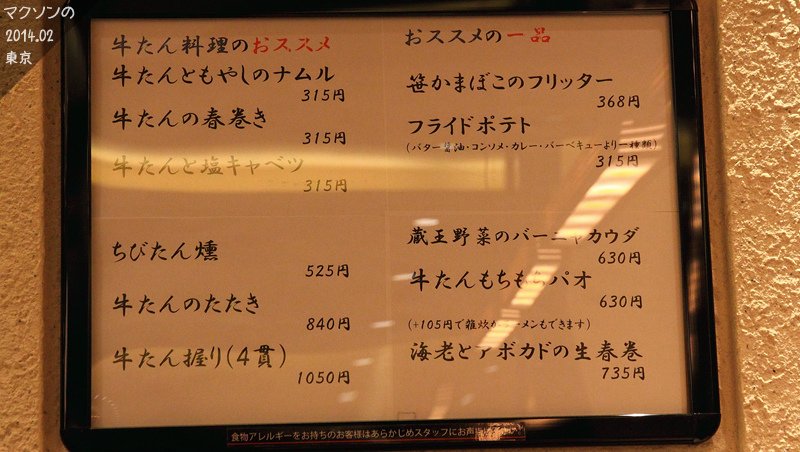 マクソンの
2014.02
東京
牛たん料理のおススメ
牛たんともやしのナムル
315円
牛たんの春巻き
315円
牛たんと塩キャベツ
315円
ちびたん燻
525円
牛たんのたたき
840円
牛たん握り(4貫)
1050円
おススメの一品
笹かまぼこのフリッター
368円
フライドポテト
(バター醤油・コンソメ・カレー・バーベキューより一種類)
315円
蔵王野菜のバーニャカウダ
630円
牛たんもちもちパオ
630円
(+105円で雑炊かラーメンもできます)
海老とアボカドの生春巻
735円
食物アレルギーをお持ちのお客様はあらかじめスタッフにお声